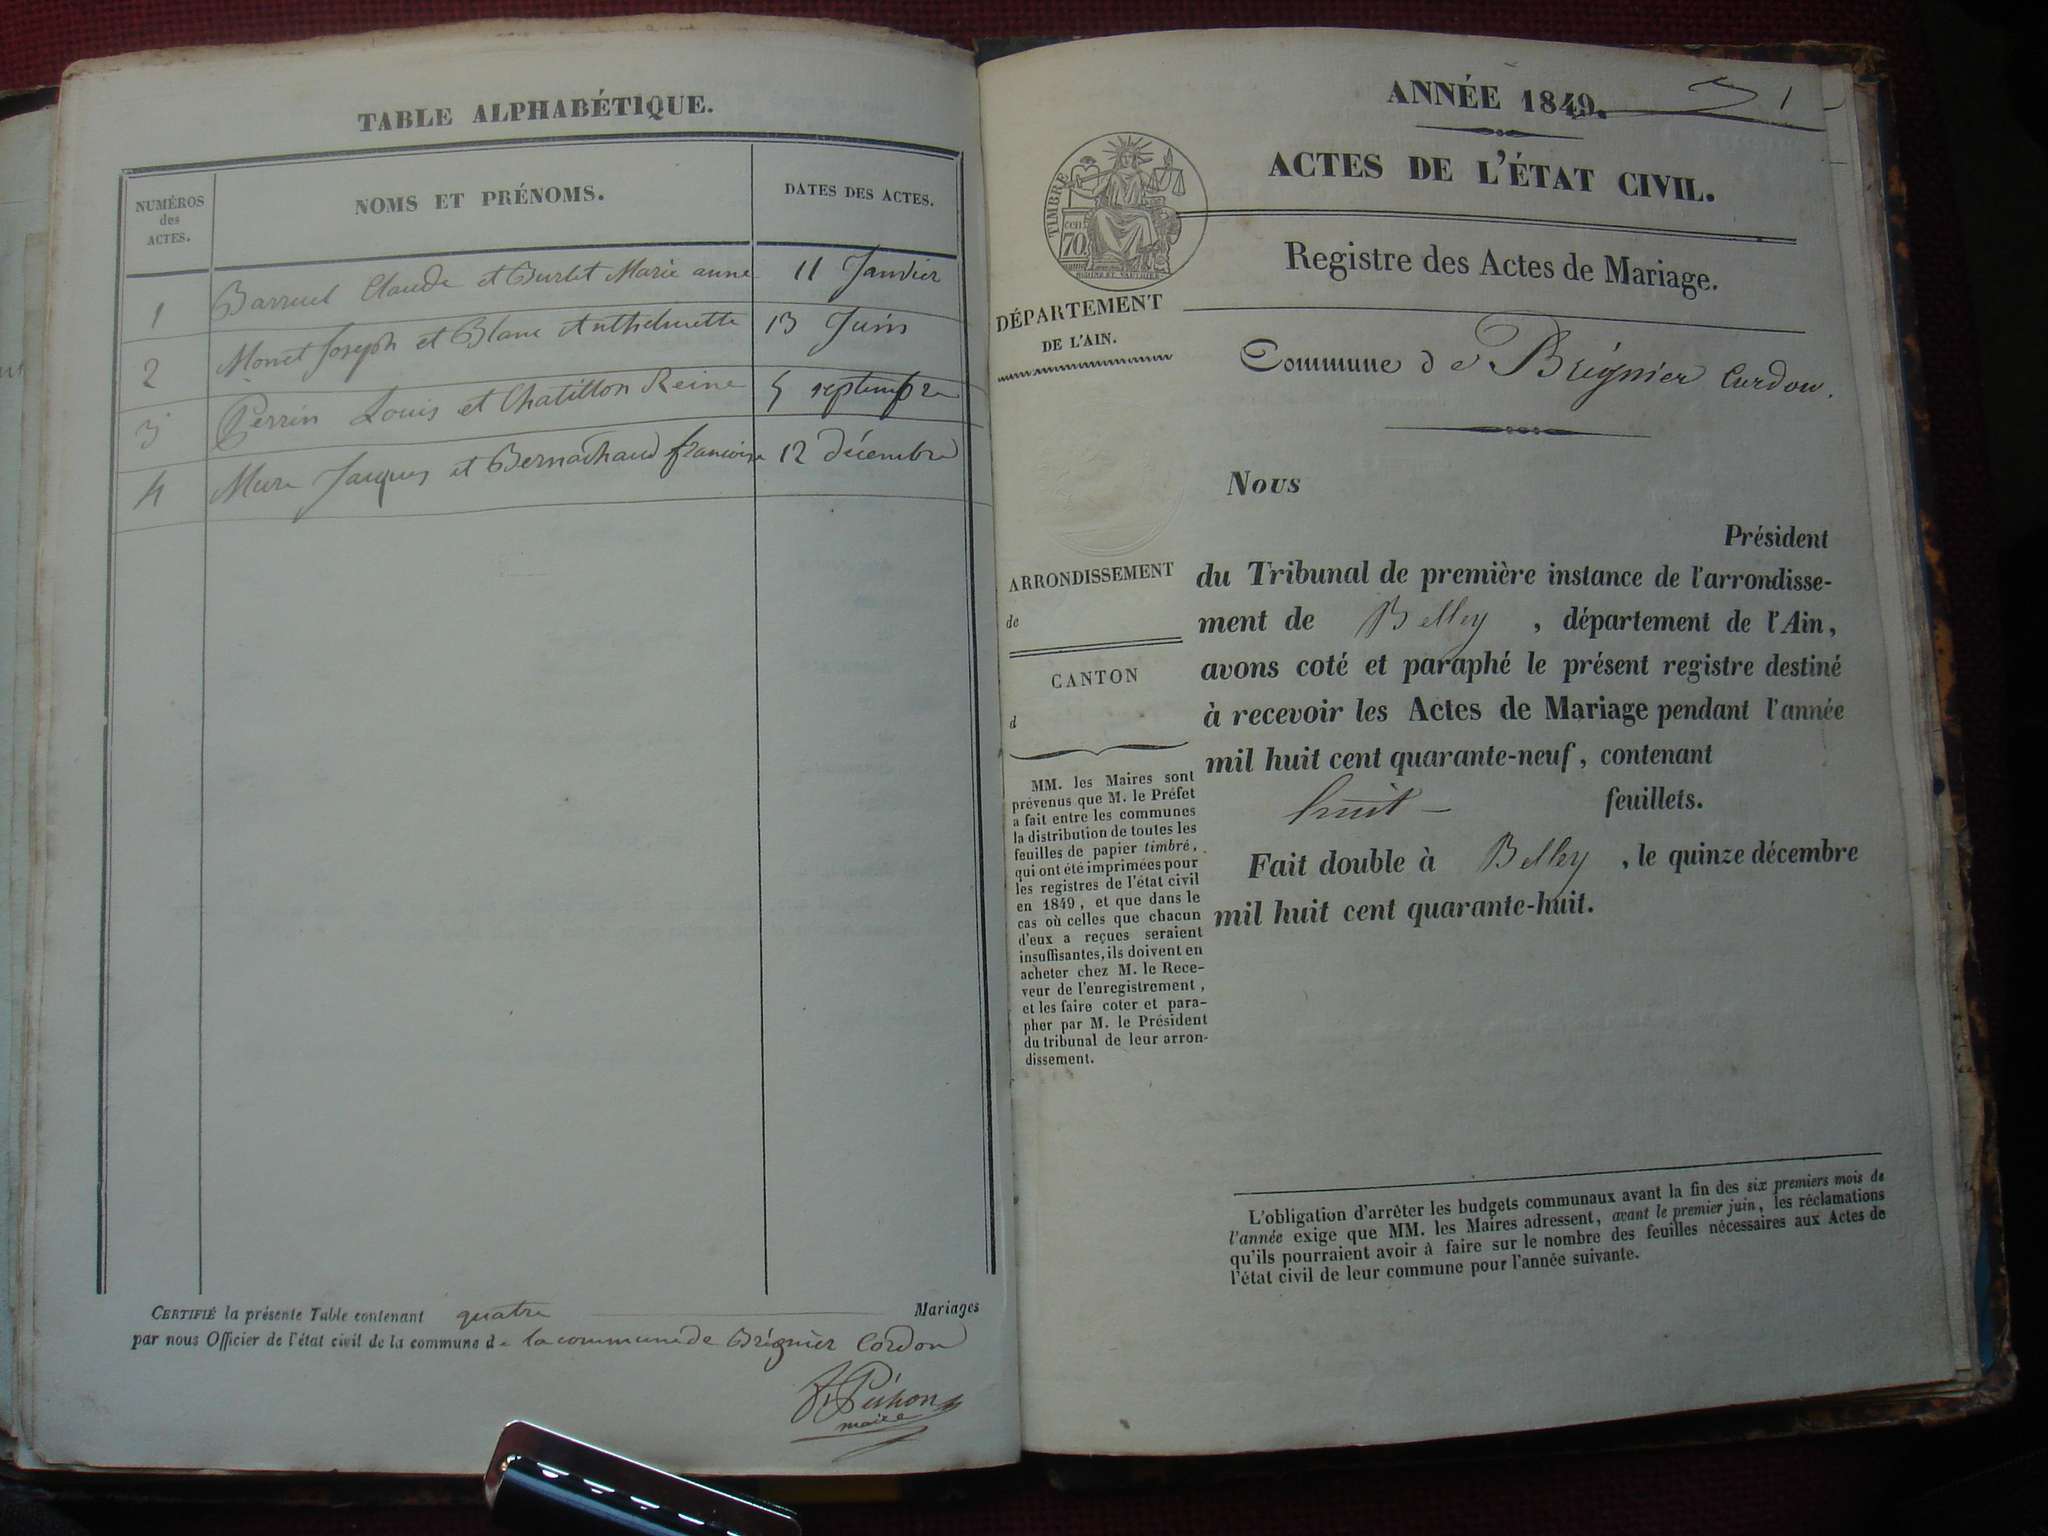 TABLE ALPHABÉTIQUE.
NUMÉROS
des
ACTES.
NOMS ET PRÉNOMS.
DATES DES ACTES.
1 Barruel Claude et Burlet Marie anne 11 Janvier
2 Monet Joseph et Blanc Anthelmette 13 Juin
3 Perrin Louis et Chatillon Reine 5 septembre
4 Mure Jacques et Bernachaud francoise 12 décembre
CERTIFIÉ la présente Table contenant quatre Mariages
par nous Officier de l'état civil de la commune de la commune de Brégnier Cordon
maire
ANNÉE 1849.
1
ACTES DE L'ÉTAT CIVIL.
TIMBRE
cen
70
Registre des Actes de Mariage.
DÉPARTEMENT
DE L'AIN.
Commune de Brégnier Cordon.
Nous
Président
ARRONDISSEMENT
de
CANTON
d
du Tribunal de première instance de l'arrondisse-
ment de Belley, département de l'Ain,
avons coté et paraphé le présent registre destiné
à recevoir les Actes de Mariage pendant l'année
mil huit cent quarante-neuf, contenant
huit feuillets.
Fait double à Belley, le quinze décembre
mil huit cent quarante-huit.
MM. les Maires sont
prévenus que M. le Préfet
a fait entre les communes
la distribution de toutes les
feuilles de papier timbré,
qui ont été imprimées pour
les registres de l'état civil
en 1849, et que dans le
cas où celles que chacun
d'eux a reçues seraient
insuffisantes, ils doivent en
acheter chez M. le Rece-
veur de l'enregistrement,
et les faire coter et para-
pher par M. le Président
du tribunal de leur arron-
dissement.
L'obligation d'arrêter les budgets communaux avant la fin des six premiers mois de
l'année exige que MM. les Maires adressent, avant le premier juin, les réclamations
qu'ils pourraient avoir à faire sur le nombre des feuilles nécessaires aux Actes de
l'état civil de leur commune pour l'année suivante.